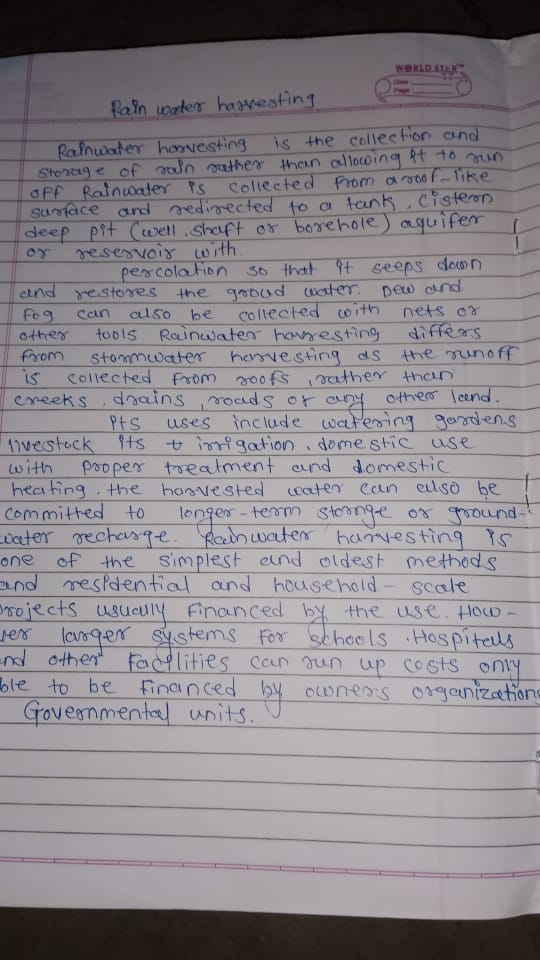 WORLD STAR
Date
Page
Rain water harvesting
Rainwater harvesting is the collection and
storage of rain rather than allowing it to run
off Rainwater is collected from a roof-like
surface and redirected to a tank, cistern
deep pit (well, shaft or borehole) aquifer
or reservoir with.
percolation so that it seeps down
and restores the groud water. Dew and
fog can also be collected with nets or
other tools. Rainwater harvesting differs
from stormwater harvesting as the runoff
is collected from roofs, rather than
creeks, drains, roads or any other land.
Its uses include watering gardens
livestock its irrigation, domestic use
with proper treatment and domestic
heating. the harvested water can also be
committed to longer-term storage or ground-
water recharge. Rainwater harvesting is
one of the simplest and oldest methods
and residential and household - scale
projects usually financed by the use. How-
ver larger systems for schools. Hospitals
and other facilities can run up costs only
ble to be financed by owners organizations
Governmental units.